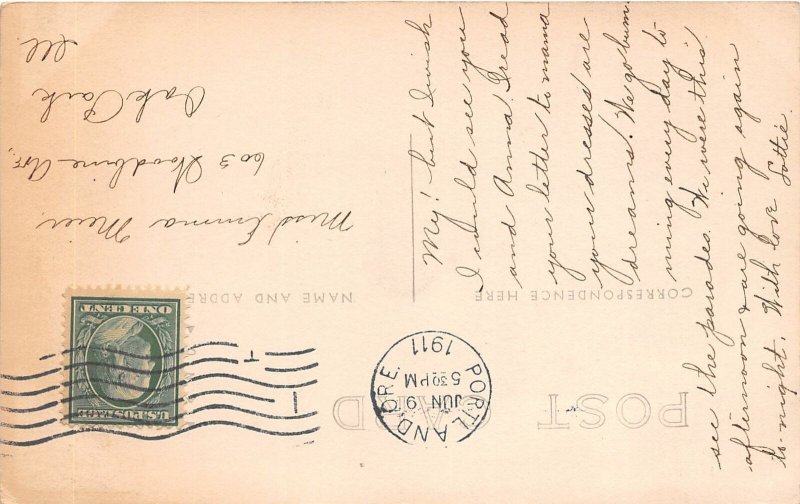 POST CARD
CORRESPONDENCE HERE
NAME AND ADDRE
PORTLAND, ORE.
JUN 9
5 30 PM
1911
1
T
U.S. POSTAGE
ONE CENT
My! but I wish
I could see you
and Anna. I read
your letter to mama
your dresses are
dreams. We go bum-
ming every day to
see the parades. We were this
afternoon & are going again
to-night. With love Lottie.
Miss Emma Meier
603 Woodbine Av,
Oak Park
Ill